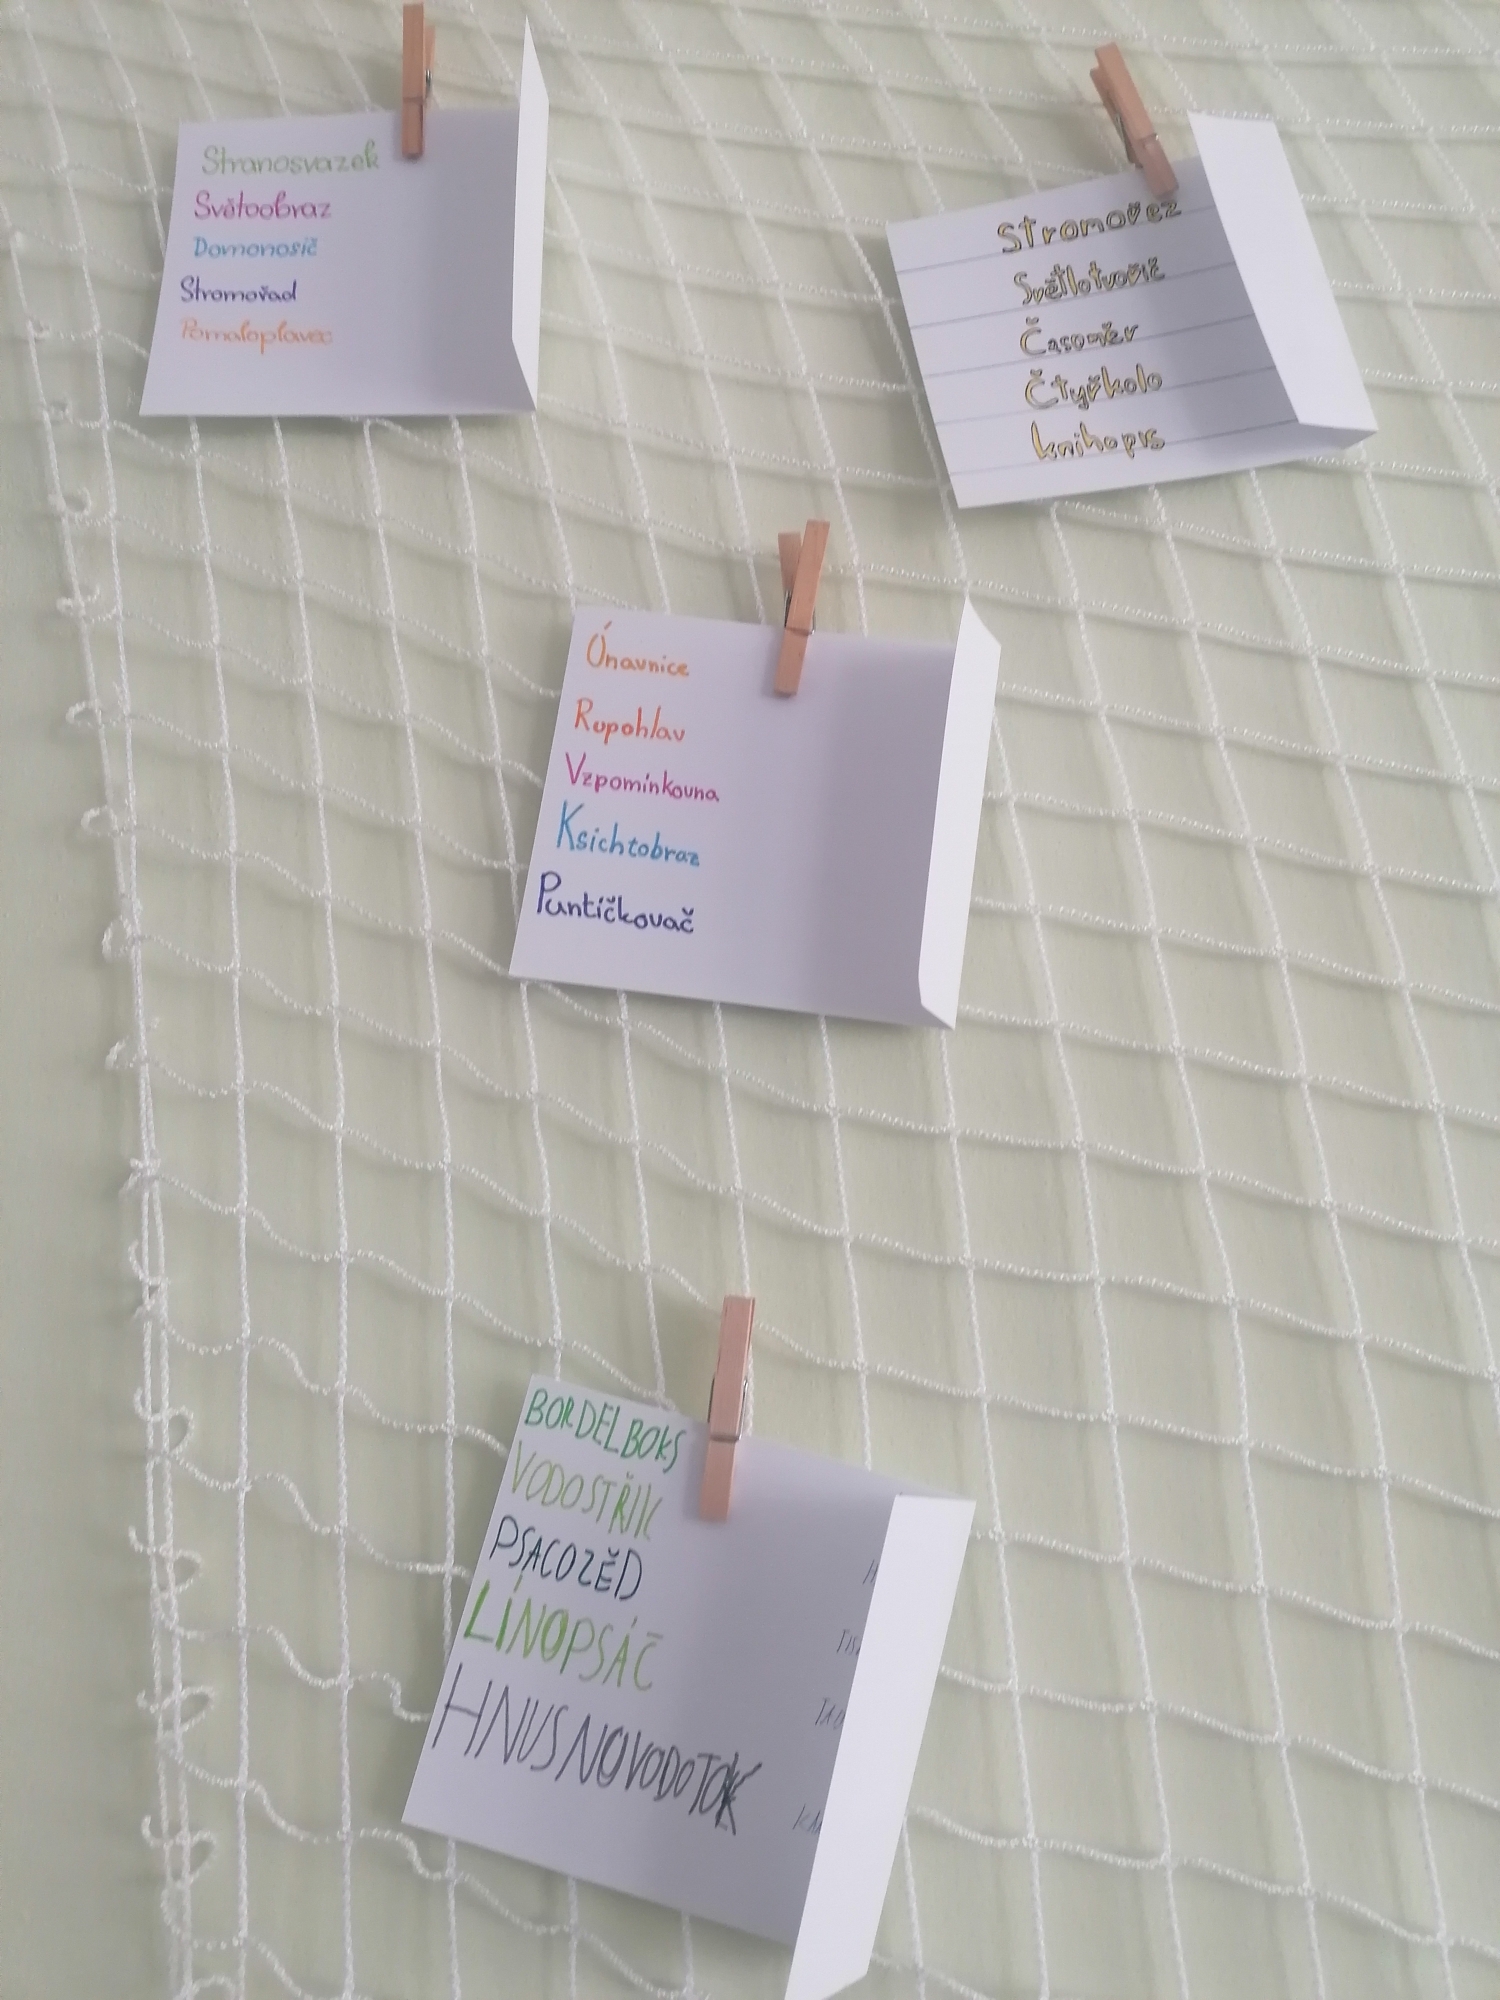 Stranosvazek
Světoobraz
Domonosič
Stromořad
Pomaloplavec
Stromořez
Světlotvořič
Časoměr
Čtyřkolo
knihopis
Únavnice
Rupohlav
Vzpomínkovna
Ksichtobraz
Puntíčkovač
BORDELBOKS
VODOSTŘIK
PSACOZĚD
LÍNOPSÁČ
HNUSNOVODOTOK